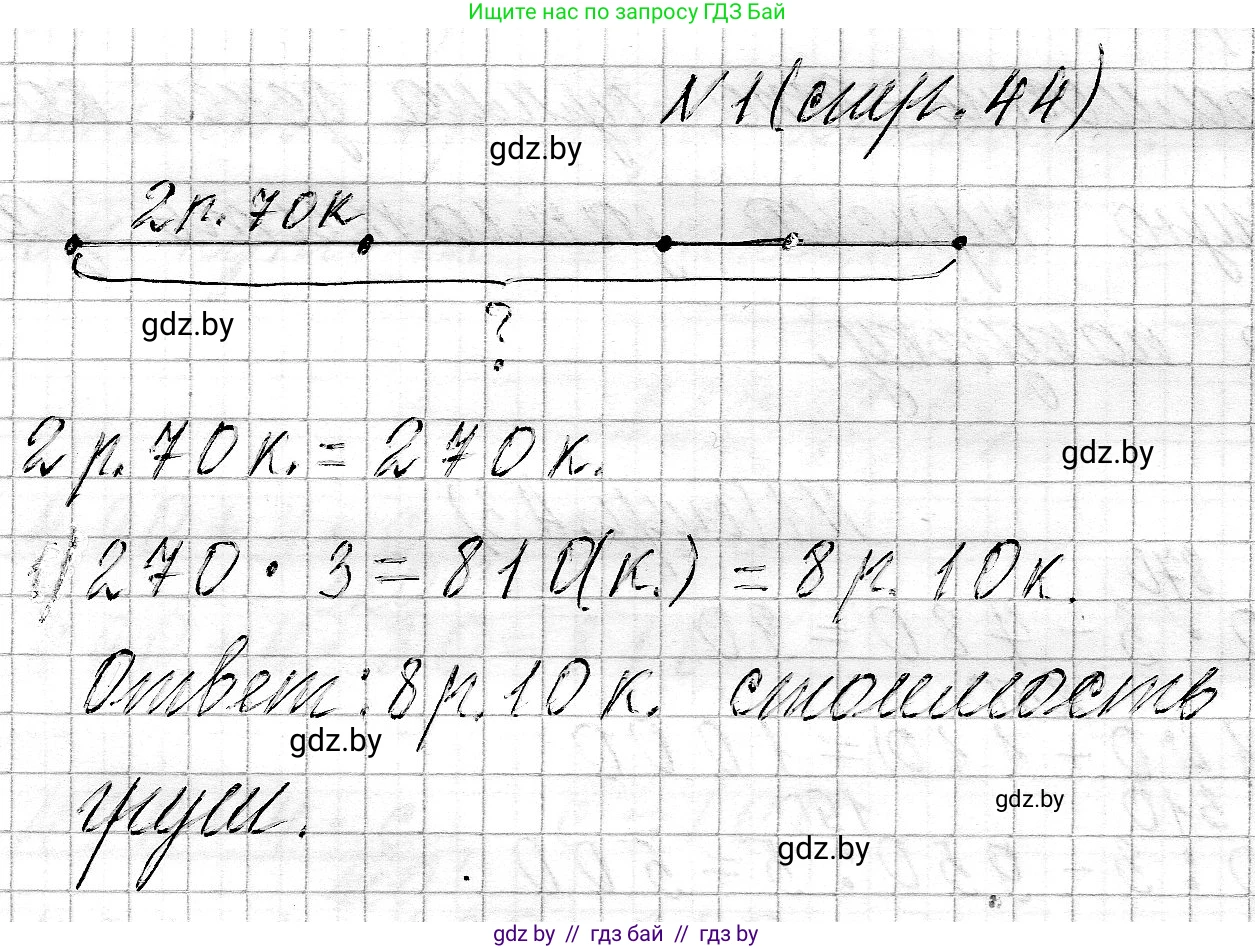 Ищите нас по запросу ГДЗ Бай
N 1 (стр. 44)
gdz.by
2р. 70к
gdz.by
?
2 р. 70 к. = 270 к.
gdz.by
1) 270 · 3 = 810(к.) = 8 р. 10 к.
Ответ: 8 р. 10 к. стоимость
gdz.by
груш.
gdz.by
gdz.by
gdz.by // гдз бай // гдз by